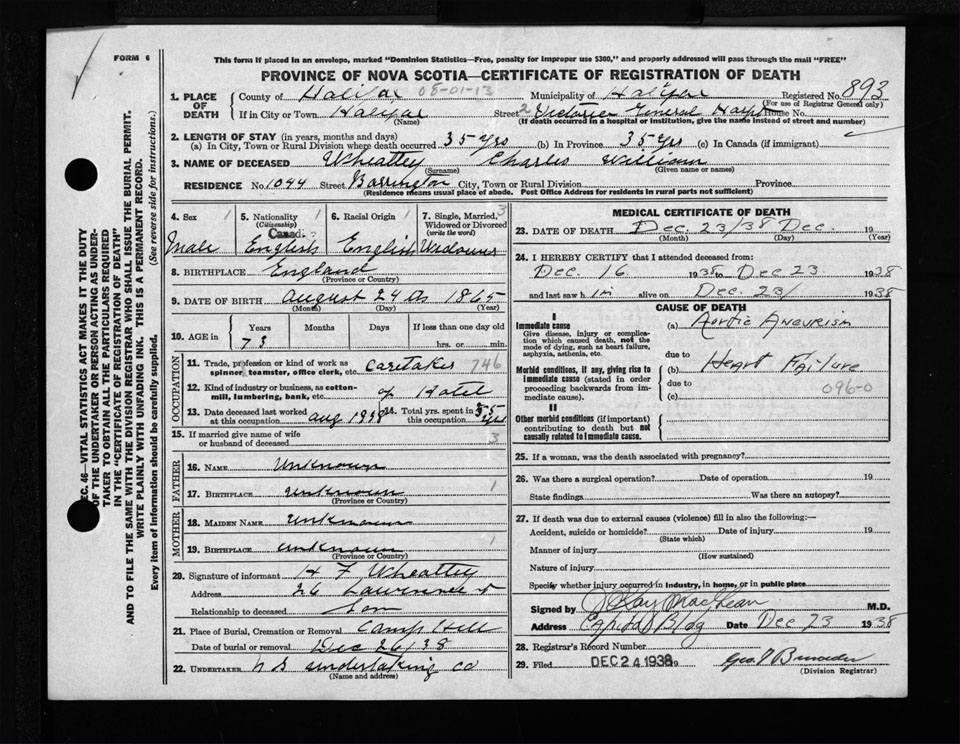 FORM 6
This form if placed in an envelope, marked "Dominion Statistics—Free, penalty for improper use $300," and properly addressed will pass through the mail "FREE"
PROVINCE OF NOVA SCOTIA—CERTIFICATE OF REGISTRATION OF DEATH
893
1. PLACE OF DEATH
County of Halifax 08-01-13 Municipality of Halifax Registered No.
(For use of Registrar General only)
If in City or Town Halifax Street 2 Victoria General Hosp House No.
(Name) (If death occurred in a hospital or institution, give the name instead of street and number)
2. LENGTH OF STAY (in years, months and days)
(a) In City, Town or Rural Division where death occurred 35 yrs (b) In Province 35 yrs (c) In Canada (if immigrant)
3. NAME OF DECEASED Wheatley Charles William
(Surname) (Given name or names)
RESIDENCE No. 1044 Street Barrington City, Town or Rural Division Province
(Residence means usual place of abode. Post Office Address for residents in rural parts not sufficient)
4. Sex 1 Male
5. Nationality 1 (Citizenship) Canadi? English
6. Racial Origin 1 English
7. Single, Married, Widowed or Divorced (write the word) 3 Widower
8. BIRTHPLACE England
(Province or Country)
9. DATE OF BIRTH August 24 th 1865
(Month) (Day) (Year)
10. AGE in Years Months Days If less than one day old
73 hrs. or min.
OCCUPATION
11. Trade, profession or kind of work as spinner, teamster, office clerk, etc. caretaker 746
12. Kind of industry or business, as cotton-mill, lumbering, bank, etc. of Hotel
13. Date deceased last worked at this occupation Aug 1938
14. Total yrs. spent in this occupation 35 yrs
15. If married give name of wife or husband of deceased 3
FATHER
16. NAME Unknown
17. BIRTHPLACE unknown 1
(Province or Country)
MOTHER
18. MAIDEN NAME unknown
19. BIRTHPLACE unknown 1
(Province or Country)
20. Signature of informant H F Wheatley
Address 26 Lawrence st
Relationship to deceased Son
21. Place of Burial, Cremation or Removal Camp Hill
Date of burial or removal Dec 26/38
22. UNDERTAKER N S undertaking co
(Name and address)
MEDICAL CERTIFICATE OF DEATH
23. DATE OF DEATH Dec. 23/38 Dec. 19
(Month) (Day) (Year)
24. I HEREBY CERTIFY that I attended deceased from:
Dec. 16 1938 to Dec 23 1938
and last saw h im alive on Dec. 23/ 1938
CAUSE OF DEATH
I
Immediate cause
Give disease, injury or complication which caused death, not the mode of dying, such as heart failure, asphyxia, asthenia, etc.
(a) Aortic Aneurism
due to
Morbid conditions, if any, giving rise to immediate cause (stated in order proceeding backwards from immediate cause).
(b) Heart Failure
due to 096-0
(c)
II
Other morbid conditions (if important) contributing to death but not causally related to immediate cause.
25. If a woman, was the death associated with pregnancy?
26. Was there a surgical operation? Date of operation 19
State findings Was there an autopsy?
27. If death was due to external causes (violence) fill in also the following:—
Accident, suicide or homicide? Date of injury 19
(State which)
Manner of injury
(How sustained)
Nature of injury
Specify whether injury occurred in industry, in home, or in public place
Signed by J Kay MacLean M.D.
Address Capitol Bldg Date Dec 23 1938
28. Registrar's Record Number
29. Filed DEC 24 1938 9
(Division Registrar)
SEC. 46—VITAL STATISTICS ACT MAKES IT THE DUTY
OF THE UNDERTAKER OR PERSON ACTING AS UNDER-
TAKER TO OBTAIN ALL THE PARTICULARS REQUIRED
IN THE "CERTIFICATE OF REGISTRATION OF DEATH"
AND TO FILE THE SAME WITH THE DIVISION REGISTRAR WHO SHALL ISSUE THE BURIAL PERMIT.
WRITE PLAINLY WITH UNFADING INK. THIS IS A PERMANENT RECORD.
Every item of information should be carefully supplied. (See reverse side for instructions.)